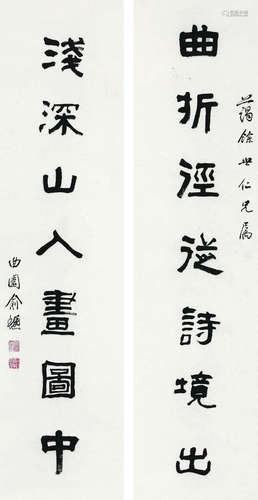 藹餘世仁兄属
曲折徑從詩境出
淺深山入畫圖中
曲園俞樾